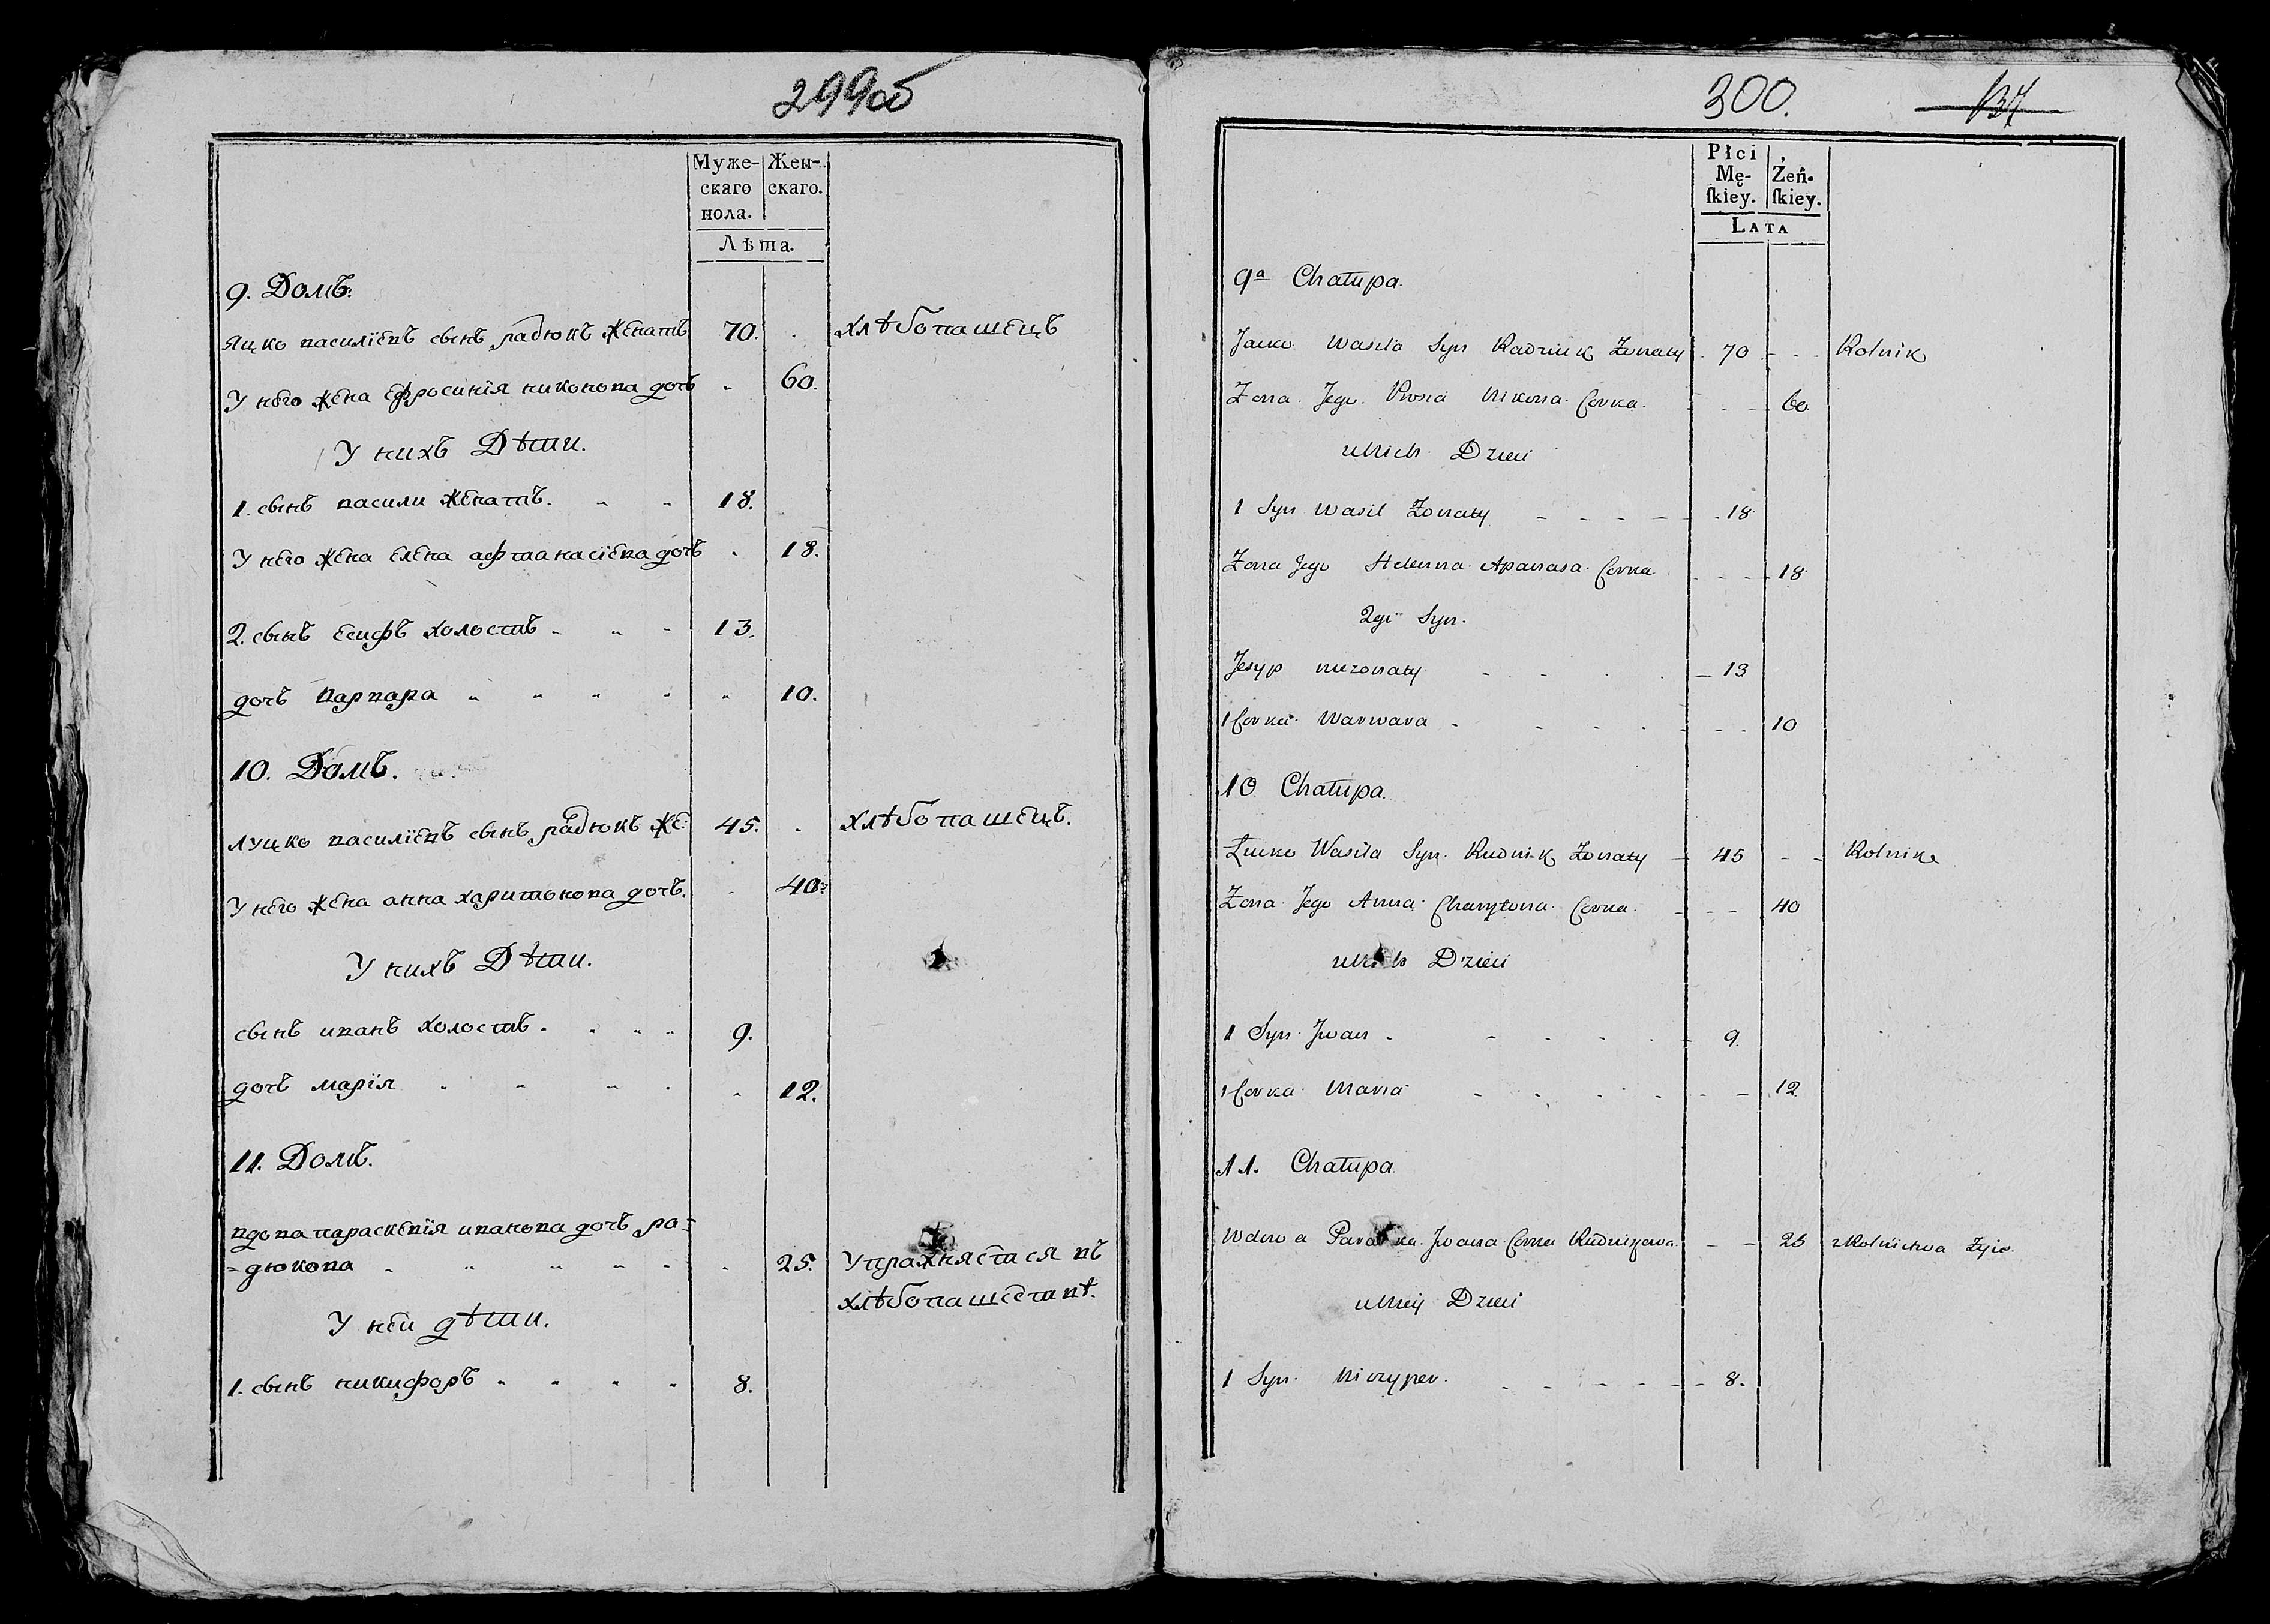 299об
Муже-
скаго
пола.
Жен-
скаго.
Лѣта.
9. Домъ.
Яцко василіевъ сынъ радюкъ женатъ 70. хлѣбопашецъ
У него жена Ефросинія никонова дочь 60.
У нихъ Дѣти.
1. сынъ васили женатъ. 18.
У него жена Елена афтанасіева дочь 18.
2. сынъ Есифъ холостъ 13.
дочь варвара 10.
10. Домъ.
луцко василіевъ сынъ радюкъ же: 45. хлѣбопашецъ.
У него жена анна харитонова дочь. 40.
У нихъ Дѣти.
сынъ иванъ холостъ. 9.
дочь марія 12.
11. Домъ.
вдова параскевія иванова дочь ра=
=дюкова 25. Упражняется въ
хлѣбопашестве.
У неи дѣти.
1. сынъ никифоръ 8.
300. 137
Płci
Mę-
skiey.
Żeń-
skiey.
LATA
9a Chałupa.
Jacko Wasila Syn Radziuk Zonaty 70 Rolnik
Zona Jego Prosia Nikona Corka. 60
u Nich Dzieci
1 Syn Wasil Zonaty 18
Zona Jego Helenna Apanasa Corka 18
2gi Syn.
Jesyp niezonaty 13
1 Corka Warwara 10
10 Chałupa.
Łucko Wasila Syn. Rudniuk Zonaty 45 Rolnik
Zona Jego Anna Charytona Corka. 40
u Nich Dzieci
1 Syn Jwan 9.
1 Corka Maria 12
11. Chałupa
Wdowa Paraska Jwana Corka 25 z Rolnictwa Zyie.
u Niey Dzieci
1 Syn Niczyper. 8.